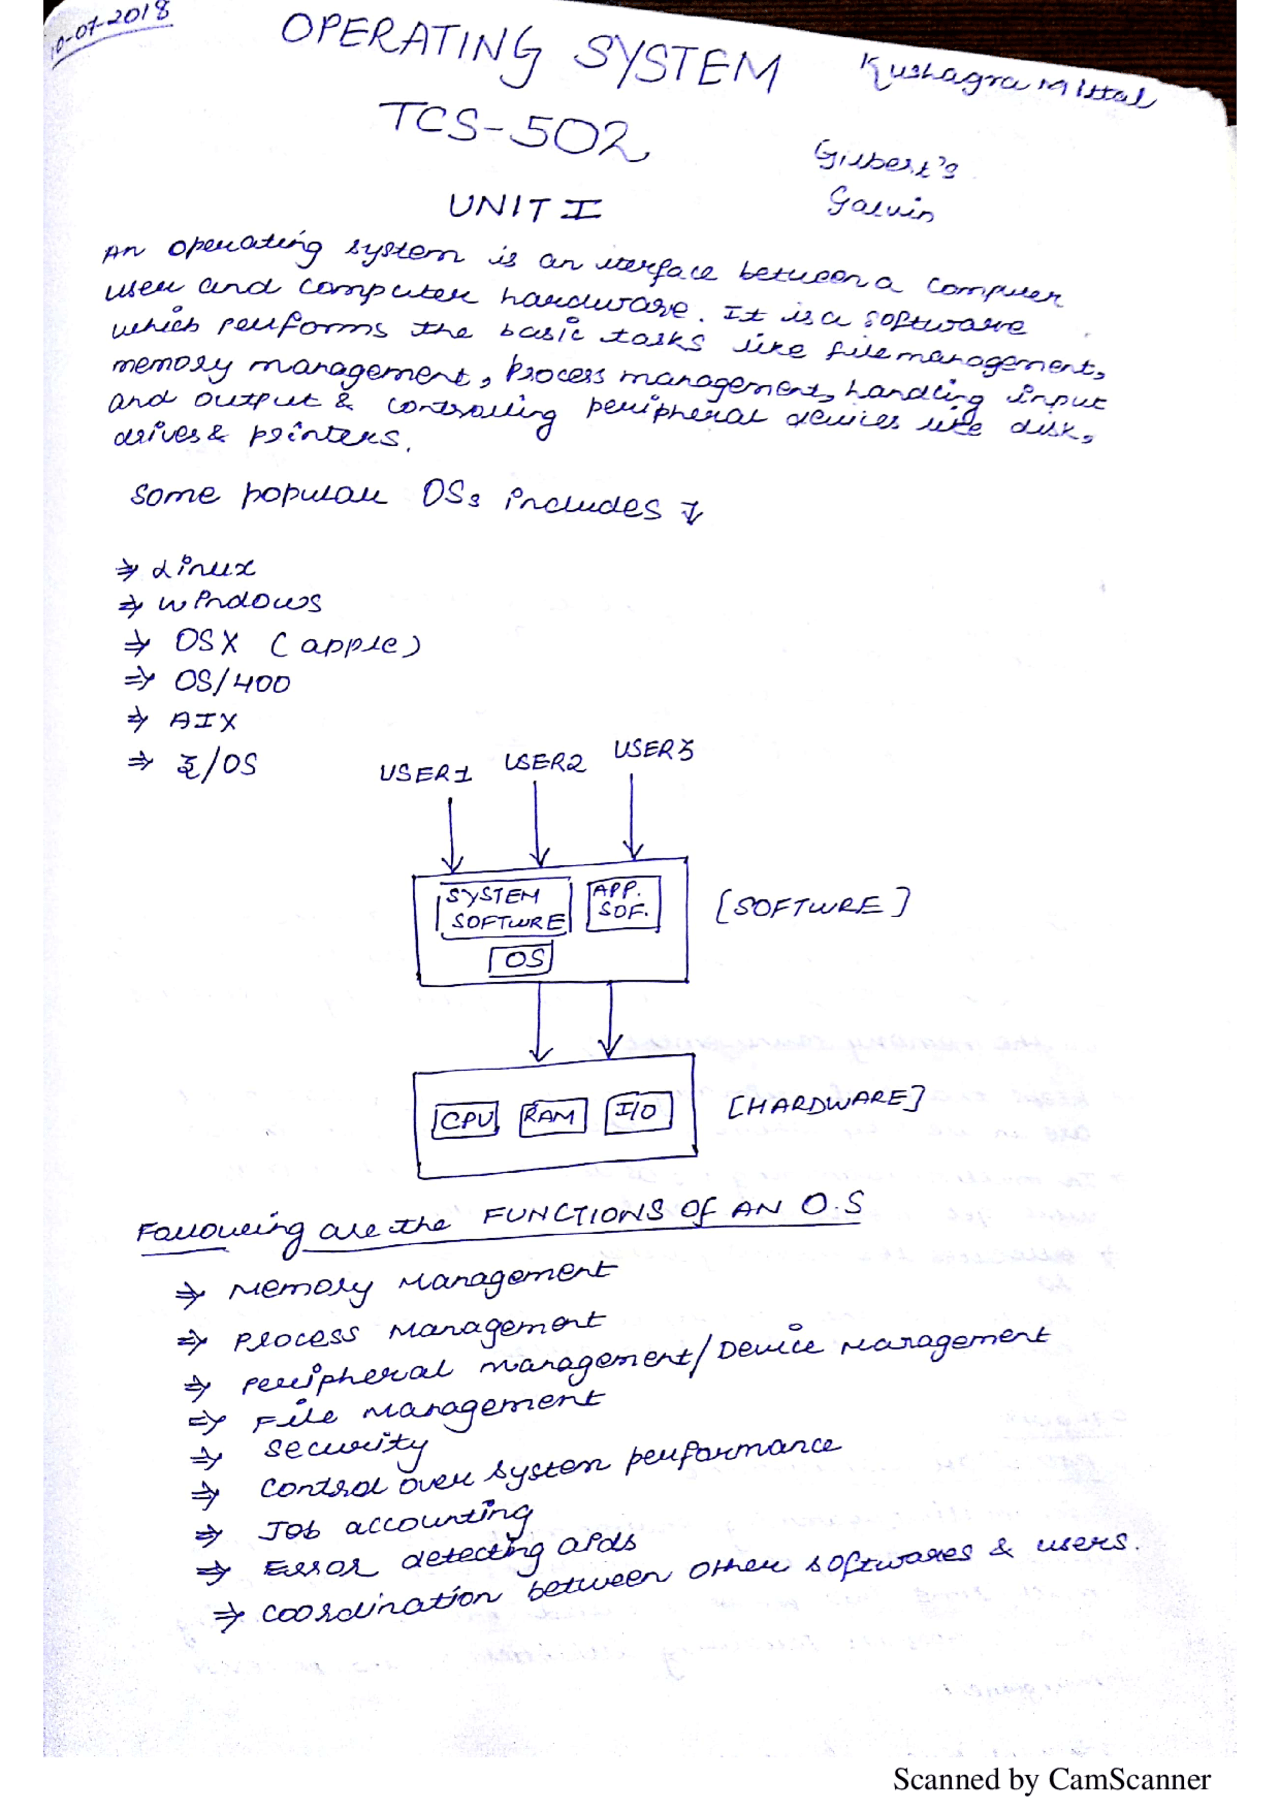 10-07-2018
OPERATING SYSTEM
Kushagra Mittal
TCS-502
Gilbert's
Galvin
UNIT I
An operating system is an iterface between a computer
user and computer hardware. It is a software
which performs the basic tasks like file management,
memory management, process management, handling input
and output & controlling peripheral devices like disk,
drives & printers.
Some popular OSs includes ↓
⇒ Linux
⇒ Windows
⇒ OSX (apple)
⇒ OS/400
⇒ AIX
⇒ z/OS
USER1 USER2 USER3
SYSTEM SOFTWRE
APP. SOF.
[SOFTWRE]
OS
CPU RAM I/O
[HARDWARE]
Following are the FUNCTIONS Of AN O.S
⇒ Memory Management
⇒ Process Management
⇒ Peripheral management/Device Management
⇒ File Management
⇒ Security
⇒ Control over system performance
⇒ Job accounting
⇒ Error detecting aids
⇒ Coordination between other softwares & users.
Scanned by CamScanner